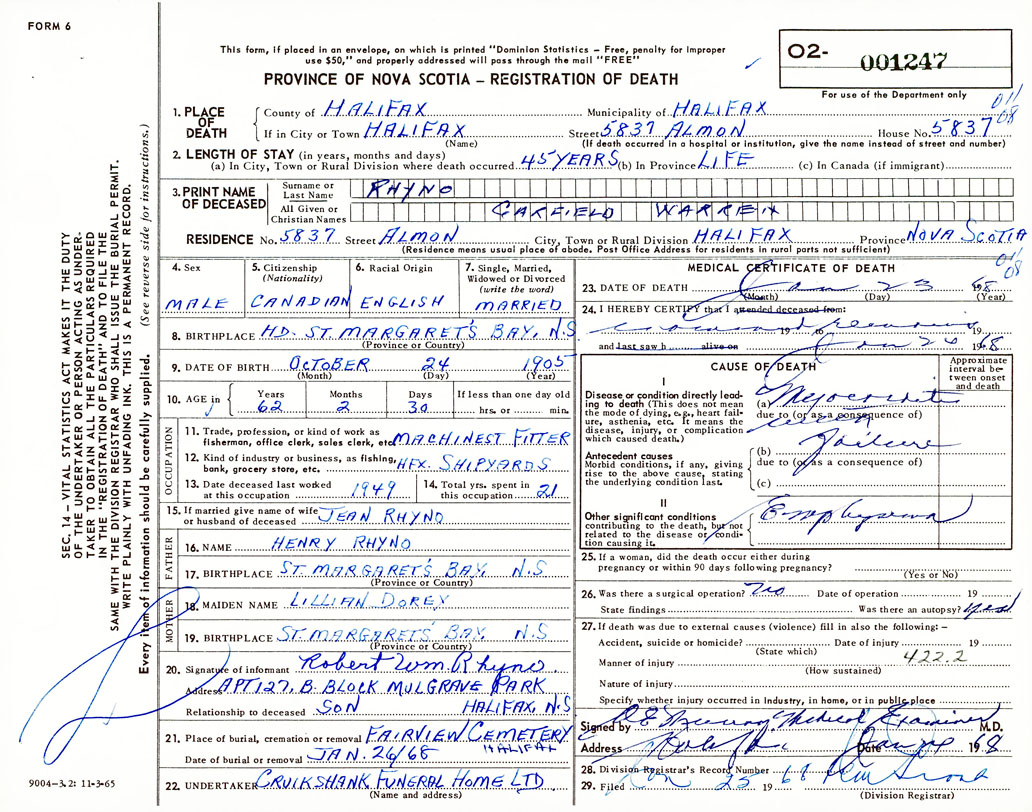 FORM 6
This form, if placed in an envelope, on which is printed "Dominion Statistics – Free, penalty for improper
use $50," and properly addressed will pass through the mail "FREE"
O2- 001247
For use of the Department only
PROVINCE OF NOVA SCOTIA – REGISTRATION OF DEATH
011
08
1. PLACE OF DEATH
County of HALIFAX Municipality of HALIFAX
If in City or Town HALIFAX Street 5837 ALMON House No. 5837
(Name) (If death occurred in a hospital or institution, give the name instead of street and number)
2. LENGTH OF STAY (in years, months and days)
(a) In City, Town or Rural Division where death occurred 45 YEARS (b) In Province LIFE (c) In Canada (if immigrant)
3. PRINT NAME OF DECEASED
Surname or Last Name RHYNO
All Given or Christian Names GARFIELD WARREN
RESIDENCE No. 5837 Street ALMON City, Town or Rural Division HALIFAX Province NOVA SCOTIA
(Residence means usual place of abode. Post Office Address for residents in rural parts not sufficient)
011
08
4. Sex MALE
5. Citizenship (Nationality) CANADIAN
6. Racial Origin ENGLISH
7. Single, Married, Widowed or Divorced (write the word) MARRIED
8. BIRTHPLACE HD. ST. MARGARET'S BAY, N.S
(Province or Country)
9. DATE OF BIRTH OCTOBER 24 1905
(Month) (Day) (Year)
10. AGE in Years 62 Months 2 Days 30 If less than one day old hrs. or min.
OCCUPATION
11. Trade, profession, or kind of work as
fisherman, office clerk, sales clerk, etc. MACHINEST FITTER
12. Kind of industry or business, as fishing,
bank, grocery store, etc. HFX. SHIPYARDS
13. Date deceased last worked at this occupation 1949
14. Total yrs. spent in this occupation 21
15. If married give name of wife or husband of deceased JEAN RHYNO
FATHER
16. NAME HENRY RHYNO
17. BIRTHPLACE ST. MARGARET'S BAY, N.S
(Province or Country)
MOTHER
18. MAIDEN NAME LILLIAN DOREY
19. BIRTHPLACE ST. MARGARET'S BAY, N.S
(Province or Country)
20. Signature of informant Robert Wm. Rhyno
Address APT 127, B. BLOCK MULGRAVE PARK
Relationship to deceased SON HALIFAX, N.S
21. Place of burial, cremation or removal FAIRVIEW CEMETERY
HALIFAX
Date of burial or removal JAN. 26/68
22. UNDERTAKER CRUIKSHANK FUNERAL HOME LTD
(Name and address)
MEDICAL CERTIFICATE OF DEATH
23. DATE OF DEATH Jan 23 1968
(Month) (Day) (Year)
24. I HEREBY CERTIFY that I attended deceased from:
19 to 19
and last saw h alive on 1968
CAUSE OF DEATH
Approximate interval between onset and death
I
Disease or condition directly leading to death (This does not mean the mode of dying, e.g., heart failure, asthenia, etc. It means the disease, injury, or complication which caused death.)
(a)
due to (or as a consequence of)
Failure
Antecedent causes
Morbid conditions, if any, giving rise to the above cause, stating the underlying condition last.
(b)
due to (or as a consequence of)
(c)
II
Other significant conditions
contributing to the death, but not related to the disease or condition causing it.
Emphysema
25. If a woman, did the death occur either during
pregnancy or within 90 days following pregnancy?
(Yes or No)
26. Was there a surgical operation? no Date of operation 19
State findings Was there an autopsy? yes
27. If death was due to external causes (violence) fill in also the following: –
Accident, suicide or homicide? Date of injury 19
(State which)
422.2
Manner of injury
(How sustained)
Nature of injury
Specify whether injury occurred in Industry, in home, or in public place
Signed by Medical Examiner M.D.
Address Date 1968
28. Division Registrar's Record Number
29. Filed Jan 25 1968
(Division Registrar)
SEC. 14 – VITAL STATISTICS ACT MAKES IT THE DUTY
OF THE UNDERTAKER OR PERSON ACTING AS UNDER-
TAKER TO OBTAIN ALL THE PARTICULARS REQUIRED
IN THE "REGISTRATION OF DEATH" AND TO FILE THE
SAME WITH THE DIVISION REGISTRAR WHO SHALL ISSUE THE BURIAL PERMIT.
WRITE PLAINLY WITH UNFADING INK. THIS IS A PERMANENT RECORD.
Every item of information should be carefully supplied. (See reverse side for instructions.)
9004-3.2: 11-3-65